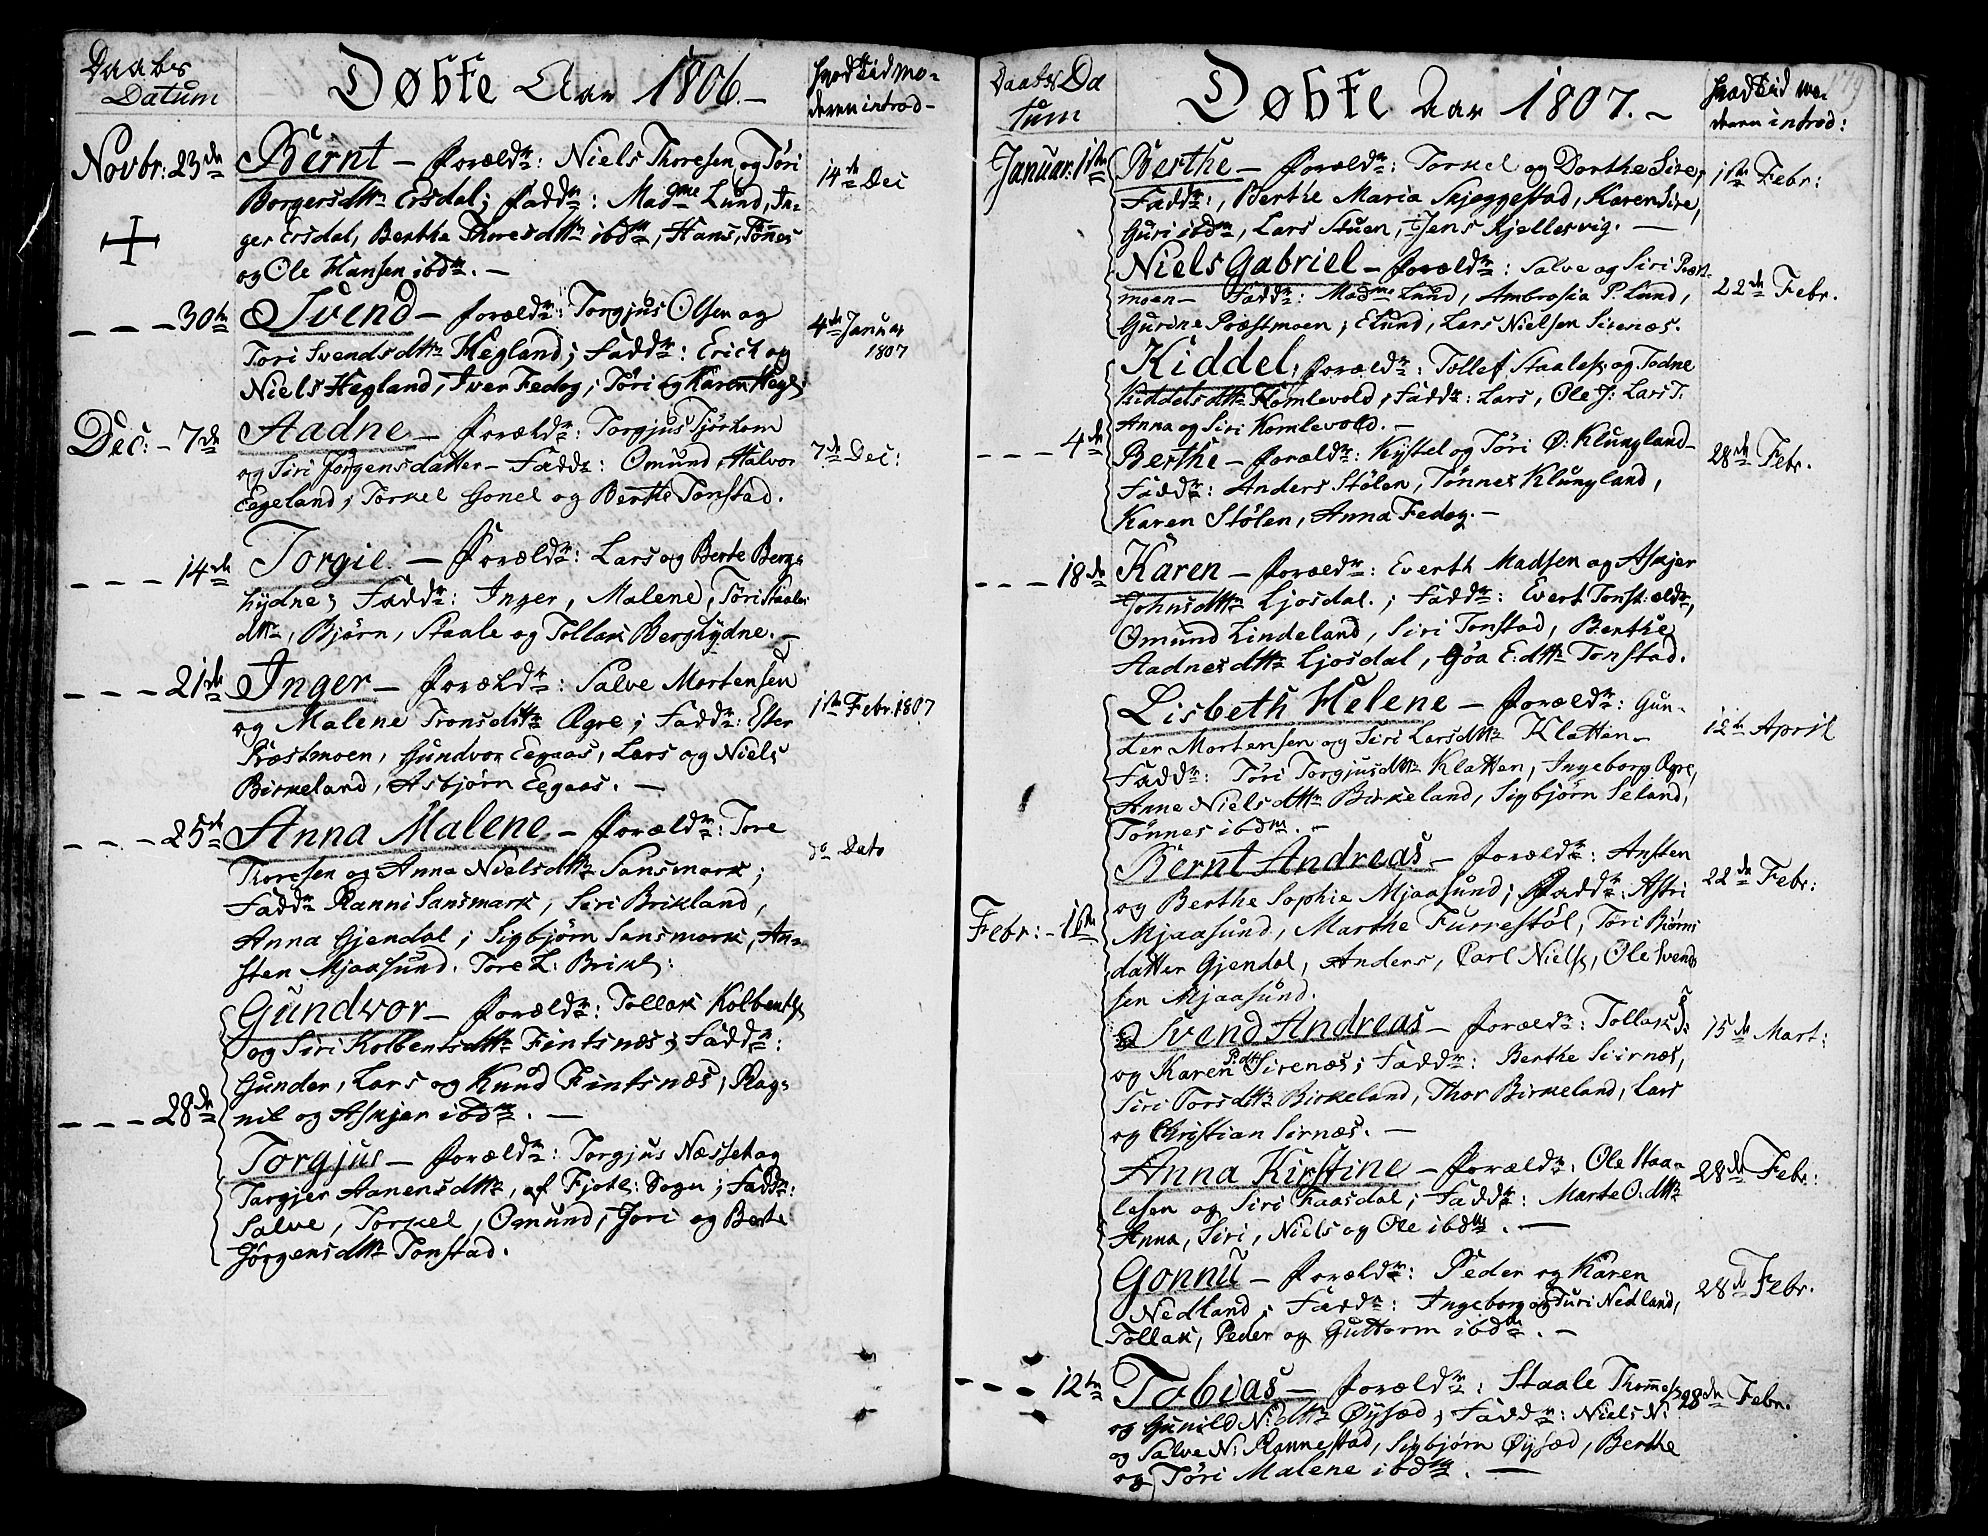 Daabs
Datum
Døbte Aar 1806.-
hvad tid mo-
deren introd-
Novbr: 23de
Bernt - foræld: Niels Thoresen og Töri
14de Dec
Borgersdttr Ersdal; Fadd: Madme Lund, In-
ger Ersdal, Berthe Thoresdttr ibdm, Hans, Tönnes
og Ole Hansen ibdm. -
- - - 30te
Svend - foræld: Torgjus Olsen og
4de Januar
1807
Tori Svendsdttr Hegland; Fadd: Erich og
Niels Hegland, Iver Fedog, Töri og Karen Hegl:
Dec: - 7de
Aadne - foræld: Torgjus Tjörhom
7de Dec:
og Siri Jørgensdatter - Fadd: Omund, Halvor
Eegeland, Torkel Gonel og Berthe Tonstad.
- - - 14de
Torgie. - foræld: Lars og Berte Berg-
hydne; Fadd: Inger, Malene, Töri Staales
dttr, Bjørn, Staale og Tollak Berghydne. -
- - - 21de
Inger - foræld: Salve Mortensen
1ste Febr. 1807
og Malene Tronsdttr Øgre; Fadd: Ester
Præstmoen, Gundvor Eegaas, Lars og Niels
Birkeland, Asbjørn Eegaas. -
- - - 25de
Anna Malene - foræld: Tore
do Dato
Thoresen og Anna Nielsdttr Sansmark;
Fadd Ranni Sansmark, Siri Brikland,
Anna Gjendal; Sigbjörn Sansmark, An-
sten Mjaasund. Tore L: Brikl:
Gundvor - foræld: Tollak Kolbents
og Siri Kolbentsdttr Fintsnæs; Fadd:
Gunder, Lars og Knud Fintsnæs; Rag-
- - - 28de
nil og Asgjer ibdm. -
Torgjus - foræld: Torgjus Næsset og
Targjer Aanensdttr, af Fjotl: Sogn; Fadd:
Salve, Torkel, Omund, Jori og Berte
Jörgensdttr Tonstad.
179
Daabs Da
tum
Døbte Aar 1807. -
hvad tid mo-
deren introd:
Januar: 1ste
Berthe - foræld: Torkel og Dorthe Sire,
1ste Febr:
Fadd:, Berthe Maria Skjeggestad, Karen Sire,
Guri ibdm, Lars Stuen, Jens Kjellesvig. -
Niels Gabriel - foræld: Salve og Siri Præst-
22de Febr.
moen - Fadd: Madme Lund, Ambrosia P. Lund,
Gurine Præstmoen; E Lund, Lars Nielsen Sirenæs.
Kiddel, foræld: Tollef Staales: og Todne
Kiddelsdttr Homlevold, Fadd: Lars, Ole J: Lars T.
Anna og Siri Komlevold. -
- - - 4de
Berthe - foræld: Kystel og Töri O: Klungland -
28de Febr.
Fadd: Anders Stölen, Tönnes Klungland,
Karen Stölen, Anna Fedog. -
- - - 18de
Karen - foræld: Everth Madsen og Asgjer
Johnsdttr Ljosdal.; Fadd: Evert Tonst: ældr,
Omund Lindeland, Siri Tonstad, Berthe
Aadnesdttr Ljosdal, Göa E:dttr Tonstad.
Lisbeth Helene - foræld: Gun-
12te April
der Mortensen og Siri Larsdttr Klatten -
Fadd: Töri Torgjusdttr Klatten, Ingeborg Øgre,
Anne Nielsdttr Birkeland, Sigbjörn Seland,
Tönnes ibdm. -
Bernt Andreas - foræld: Ansten
22de Febr:
og Berthe Sophie Mjaasund; Fadd: Astri
Febr: - 1ste
Mjaasund, Marthe Furrestöl, Töri Biörns
datter Gjendal, Anders, Carl Niels, Ole Svend
sen Mjaasund.
Svend Andreas - foræld: Tollak S:
15de Mart:
og Karen P:dtt Sirenæs; Fadd: Berthe Siirnæs,
Siri Torsdttr Birkeland, Thor Birkeland, Lars
og Christian Sirnæs. -
Anna Kirstine - foræld: Ole Staa-
28de Febr:
lesen og Siri Faasdal; Fadd: Marte O:dttr
Anna, Siri, Niels og Ole ibdm. -
Gonnu - foræld: Peder og Karen
28de Febr.
Nedland, Fadd: Ingeborg og Turi Nedland,
Tollak, Peder og Guttorm ibdm. -
- - - 12te
Tobias - foræld: Staale Thomes
28de Febr.
og Gunild N:dttr Øysæd, Fadd: Niels N:
og Salve N: Rannestad, Sigbjörn Øysæd, Berthe
og Töri Malene ibdm. -